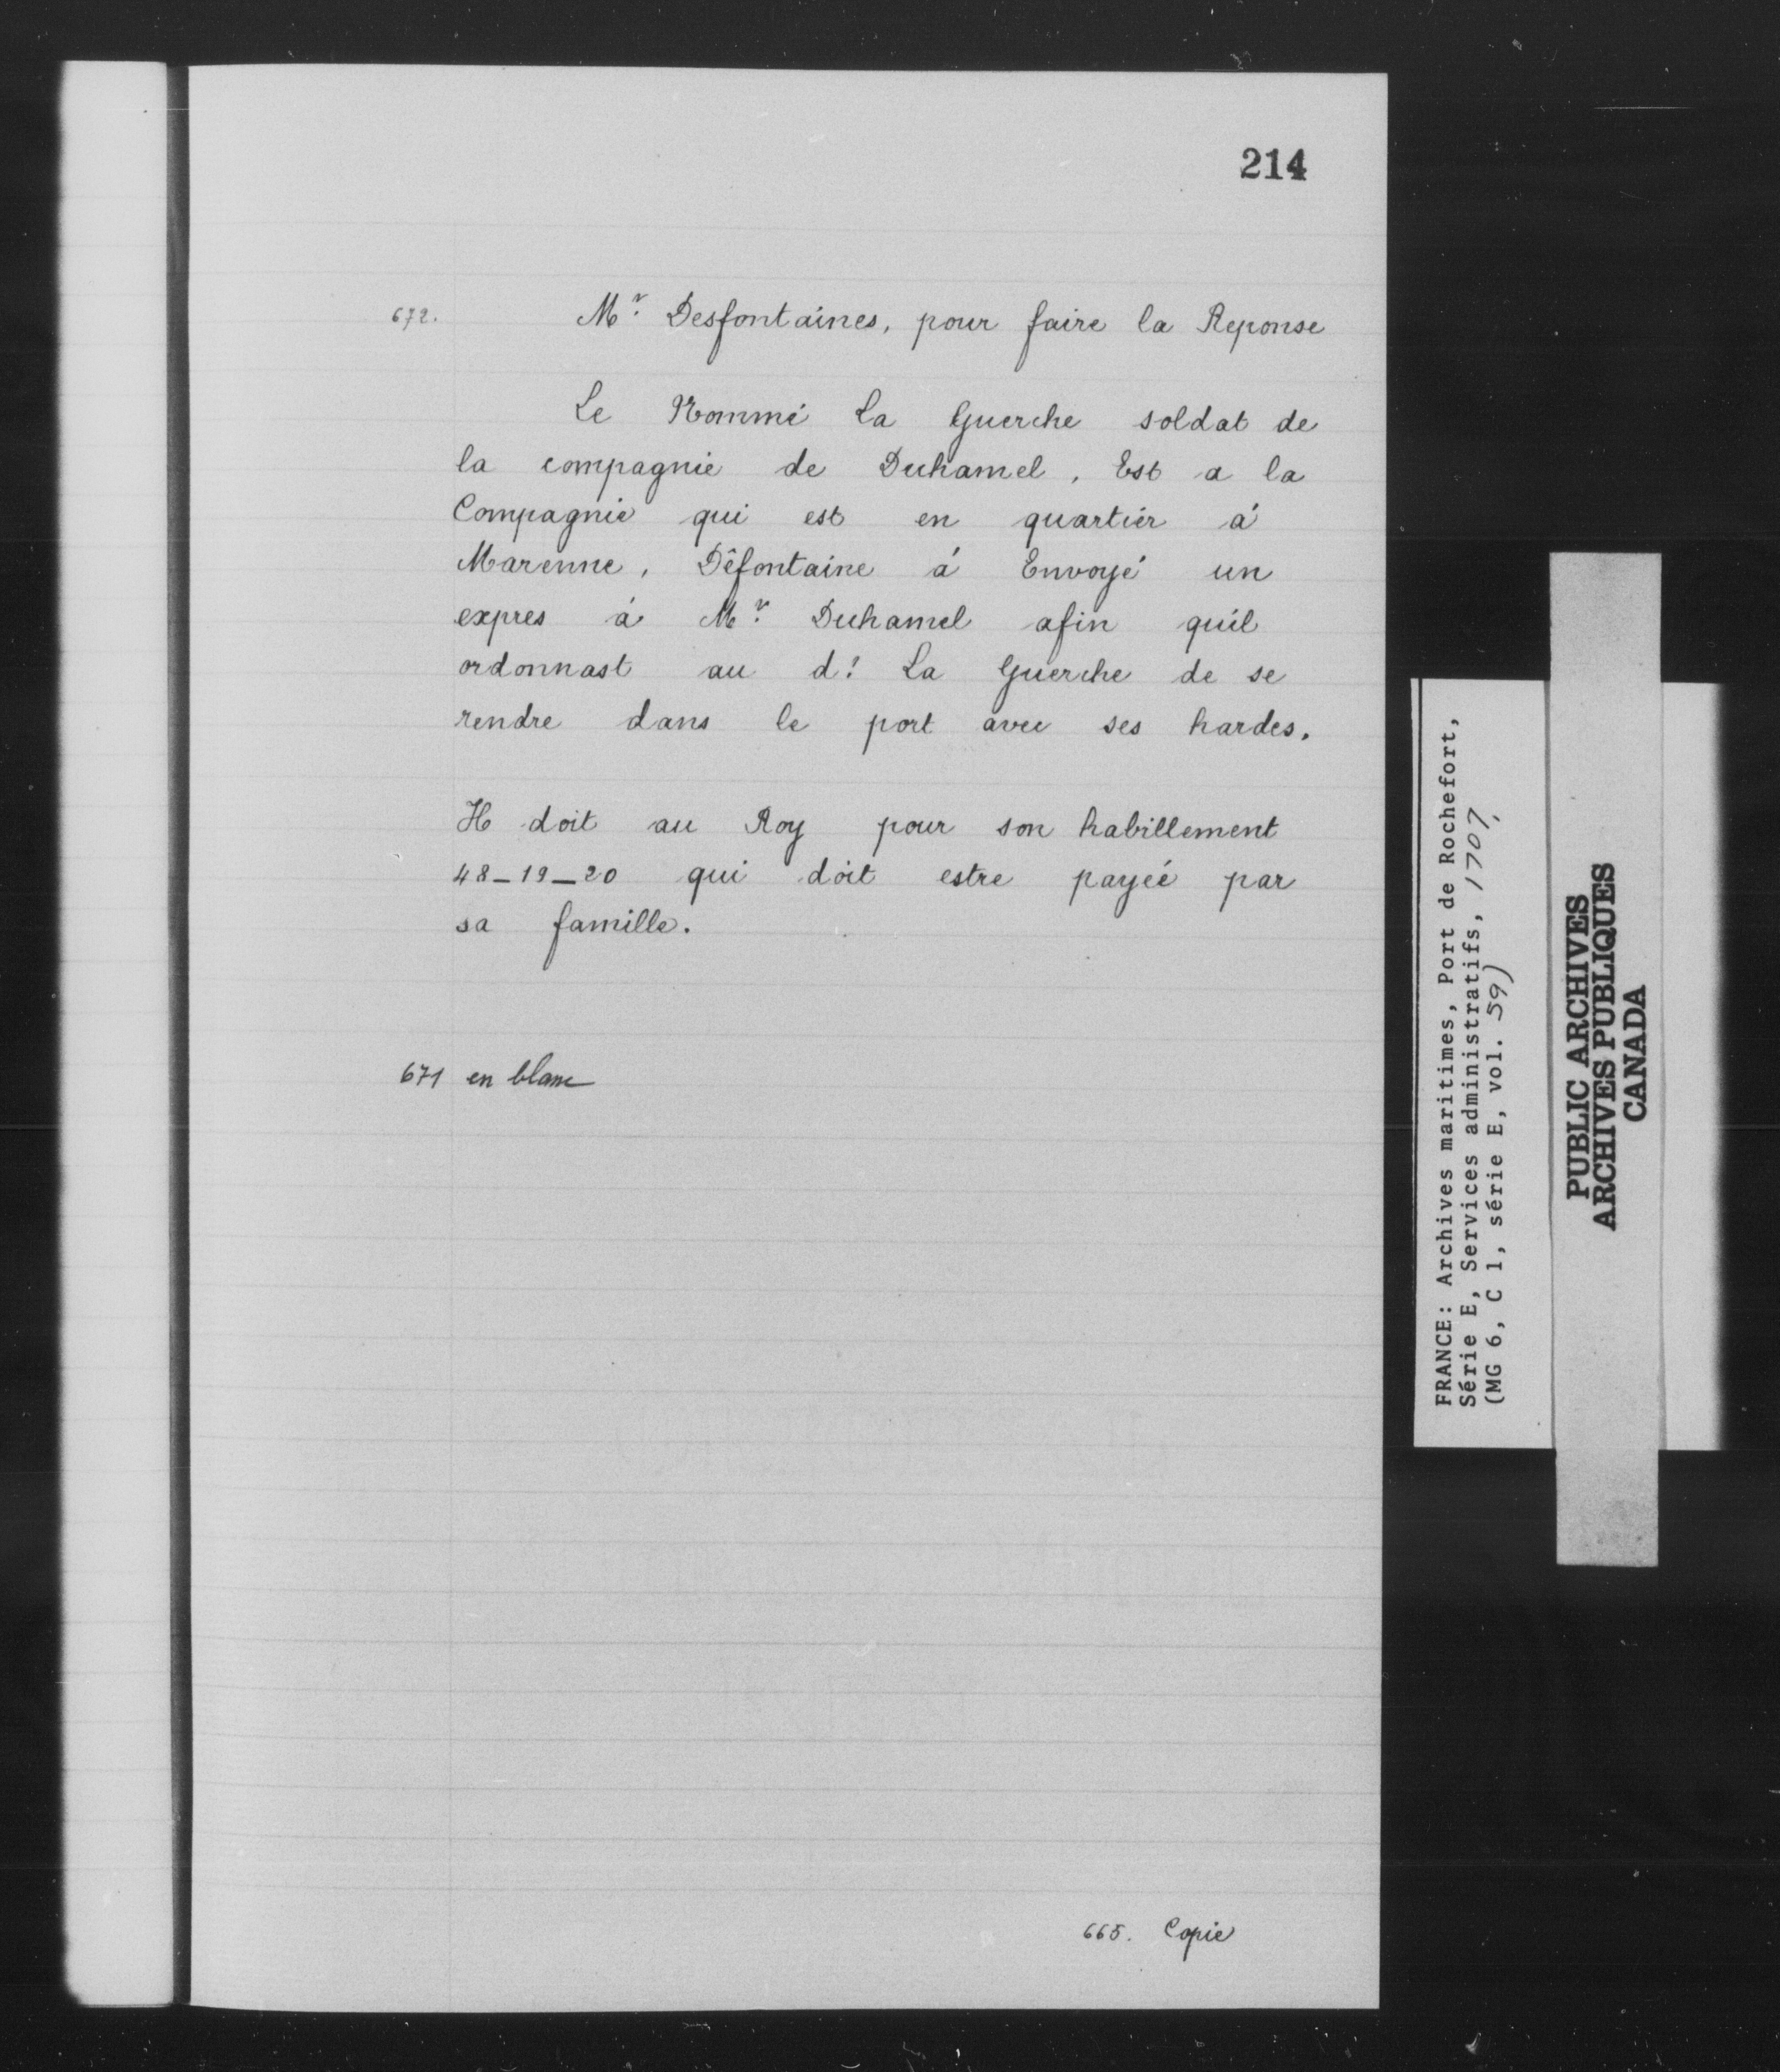 214
672. Mr. Desfontaines, pour faire la Reponse
Le Nommé La Guerche soldat de
la compagnie de Duhamel, Est a la
Compagnie qui est en quartier à
Marenne, Dêfontaine à Envoyé un
expres à Mr. Duhamel afin quil
ordonnast au dt. La Guerche de se
rendre dans le port avec ses hardes.
Il doit au Roy pour son habillement
48-19-20 qui doit estre payéé par
sa famille.
671 en blanc
665. Copie
FRANCE: Archives maritimes, Port de Rochefort,
Série E, Services administratifs, 1707,
(MG 6, C 1, série E, vol. 59)
PUBLIC ARCHIVES
ARCHIVES PUBLIQUES
CANADA